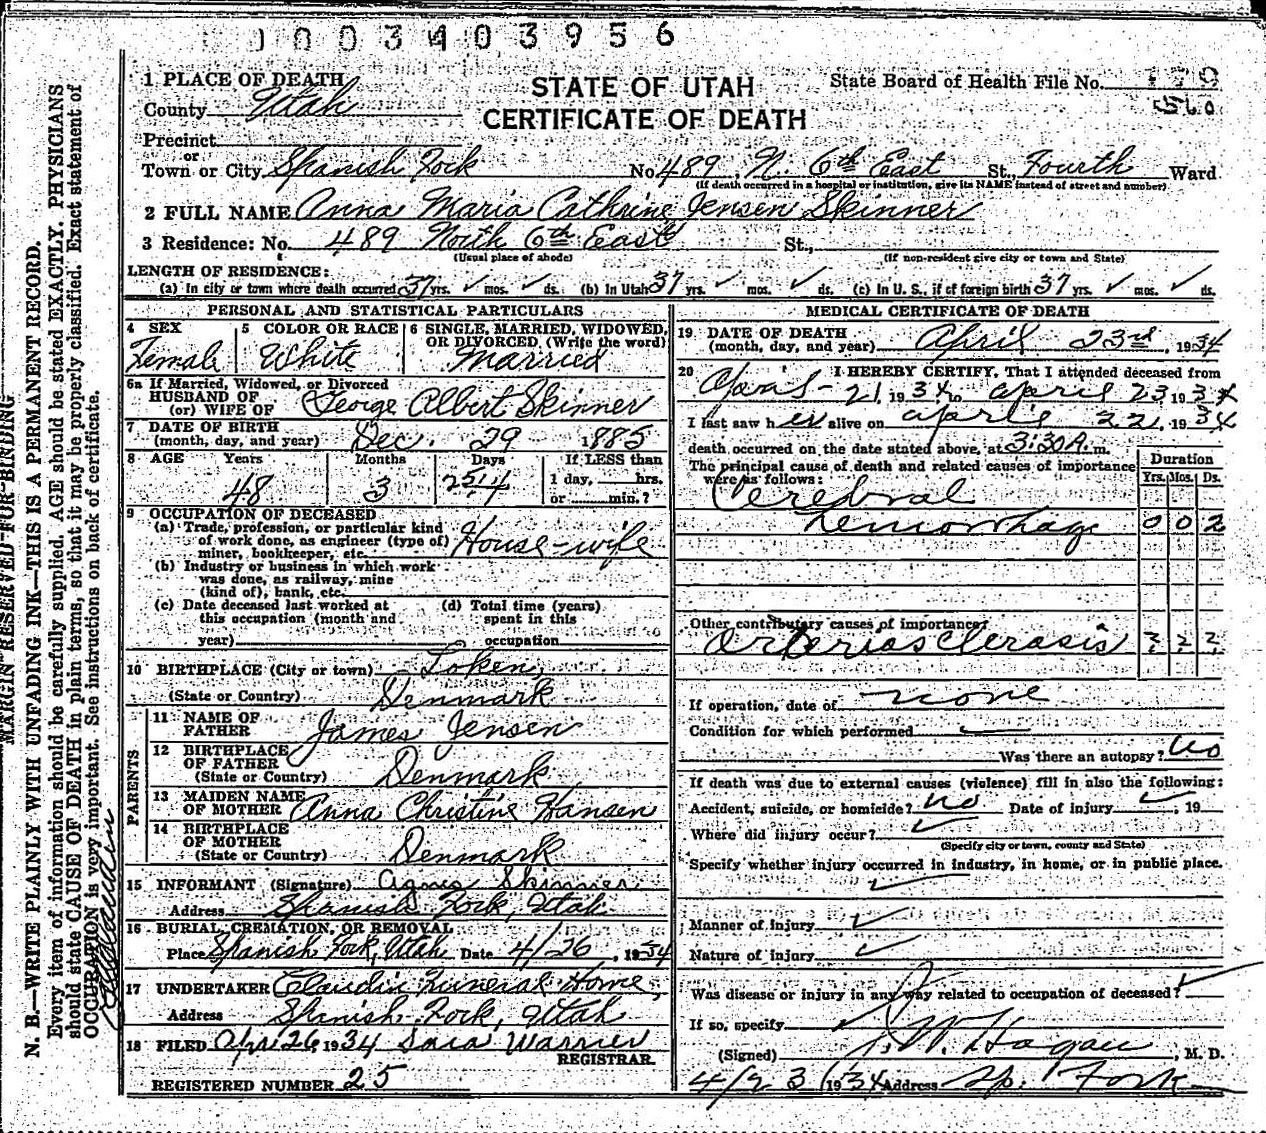 1003403956
1 PLACE OF DEATH
STATE OF UTAH
CERTIFICATE OF DEATH
State Board of Health File No. 179
560
County Utah
Precinct
or
Town or City Spanish Fork No. 489 N. 6th East St., Fourth Ward
(If death occurred in a hospital or institution, give its NAME instead of street and number)
2 FULL NAME Anna Maria Cathrine Jensen Skinner
3 Residence: No. 489 North 6th East St.,
(Usual place of abode) (If non-resident give city or town and State)
LENGTH OF RESIDENCE:
(a) In city or town where death occurred 37 yrs. ✓ mos. ✓ ds. (b) In Utah 37 yrs. ✓ mos. ✓ ds. (c) In U. S., if of foreign birth 37 yrs. ✓ mos. ✓ ds.
PERSONAL AND STATISTICAL PARTICULARS
4 SEX 5 COLOR OR RACE 6 SINGLE, MARRIED, WIDOWED,
OR DIVORCED, (Write the word)
Female White Married
6a If Married, Widowed, or Divorced
HUSBAND OF
(or) WIFE OF George Albert Skinner
7 DATE OF BIRTH
(month, day, and year) Dec. 29 1885
8 AGE Years Months Days If LESS than
1 day, hrs.
or min.?
48 3 254
9 OCCUPATION OF DECEASED
(a) Trade, profession, or particular kind
of work done, as engineer (type of)
miner, bookkeeper, etc. House-wife
(b) Industry or business in which work
was done, as railway, mine
(kind of), bank, etc.
(c) Date deceased last worked at (d) Total time (years)
this occupation (month and spent in this
year) occupation
10 BIRTHPLACE (City or town) Token,
(State or Country) Denmark
PARENTS
11 NAME OF
FATHER James Jensen
12 BIRTHPLACE
OF FATHER
(State or Country) Denmark
13 MAIDEN NAME
OF MOTHER Anna Christine Hansen
14 BIRTHPLACE
OF MOTHER
(State or Country) Denmark
15 INFORMANT (Signature) Agnes Skinner
Address Spanish Fork, Utah
16 BURIAL, CREMATION, OR REMOVAL
Place Spanish Fork, Utah Date 4/26, 1934
17 UNDERTAKER Claudin Funeral Home,
Address Spanish Fork, Utah
18 FILED Apr. 26, 1934 Sara Warner
REGISTRAR.
REGISTERED NUMBER 25
MEDICAL CERTIFICATE OF DEATH
19 DATE OF DEATH
(month, day, and year) April 23rd, 1934
20 I HEREBY CERTIFY, That I attended deceased from
April - 21, 1934, to April 23, 1934
I last saw her alive on April 22, 1934
death occurred on the date stated above, at 3:30 A. m.
The principal cause of death and related causes of importance
were as follows:
Duration
Yrs. Mos. Ds.
Cerebral
Hemorrhage 0 0 2
Other contributary causes of importance:
Arteriosclerosis ? ? ?
If operation, date of none
Condition for which performed
Was there an autopsy? No
If death was due to external causes (violence) fill in also the following:
Accident, suicide, or homicide? no Date of injury ✓, 19
Where did injury occur? ✓
(Specify city or town, county and State)
Specify whether injury occurred in industry, in home, or in public place.
✓
Manner of injury ✓
Nature of injury ✓
Was disease or injury in any way related to occupation of deceased? ✓
If so, specify
(Signed) J. W. Hagan, M. D.
4/23/1934 Address Sp. Fork
MARGIN RESERVED FOR BINDING
N. B.—WRITE PLAINLY WITH UNFADING INK—THIS IS A PERMANENT RECORD.
Every item of information should be carefully supplied. AGE should be stated EXACTLY. PHYSICIANS
should state CAUSE OF DEATH in plain terms, so that it may be properly classified. Exact statement of
OCCUPATION is very important. See instructions on back of certificate.